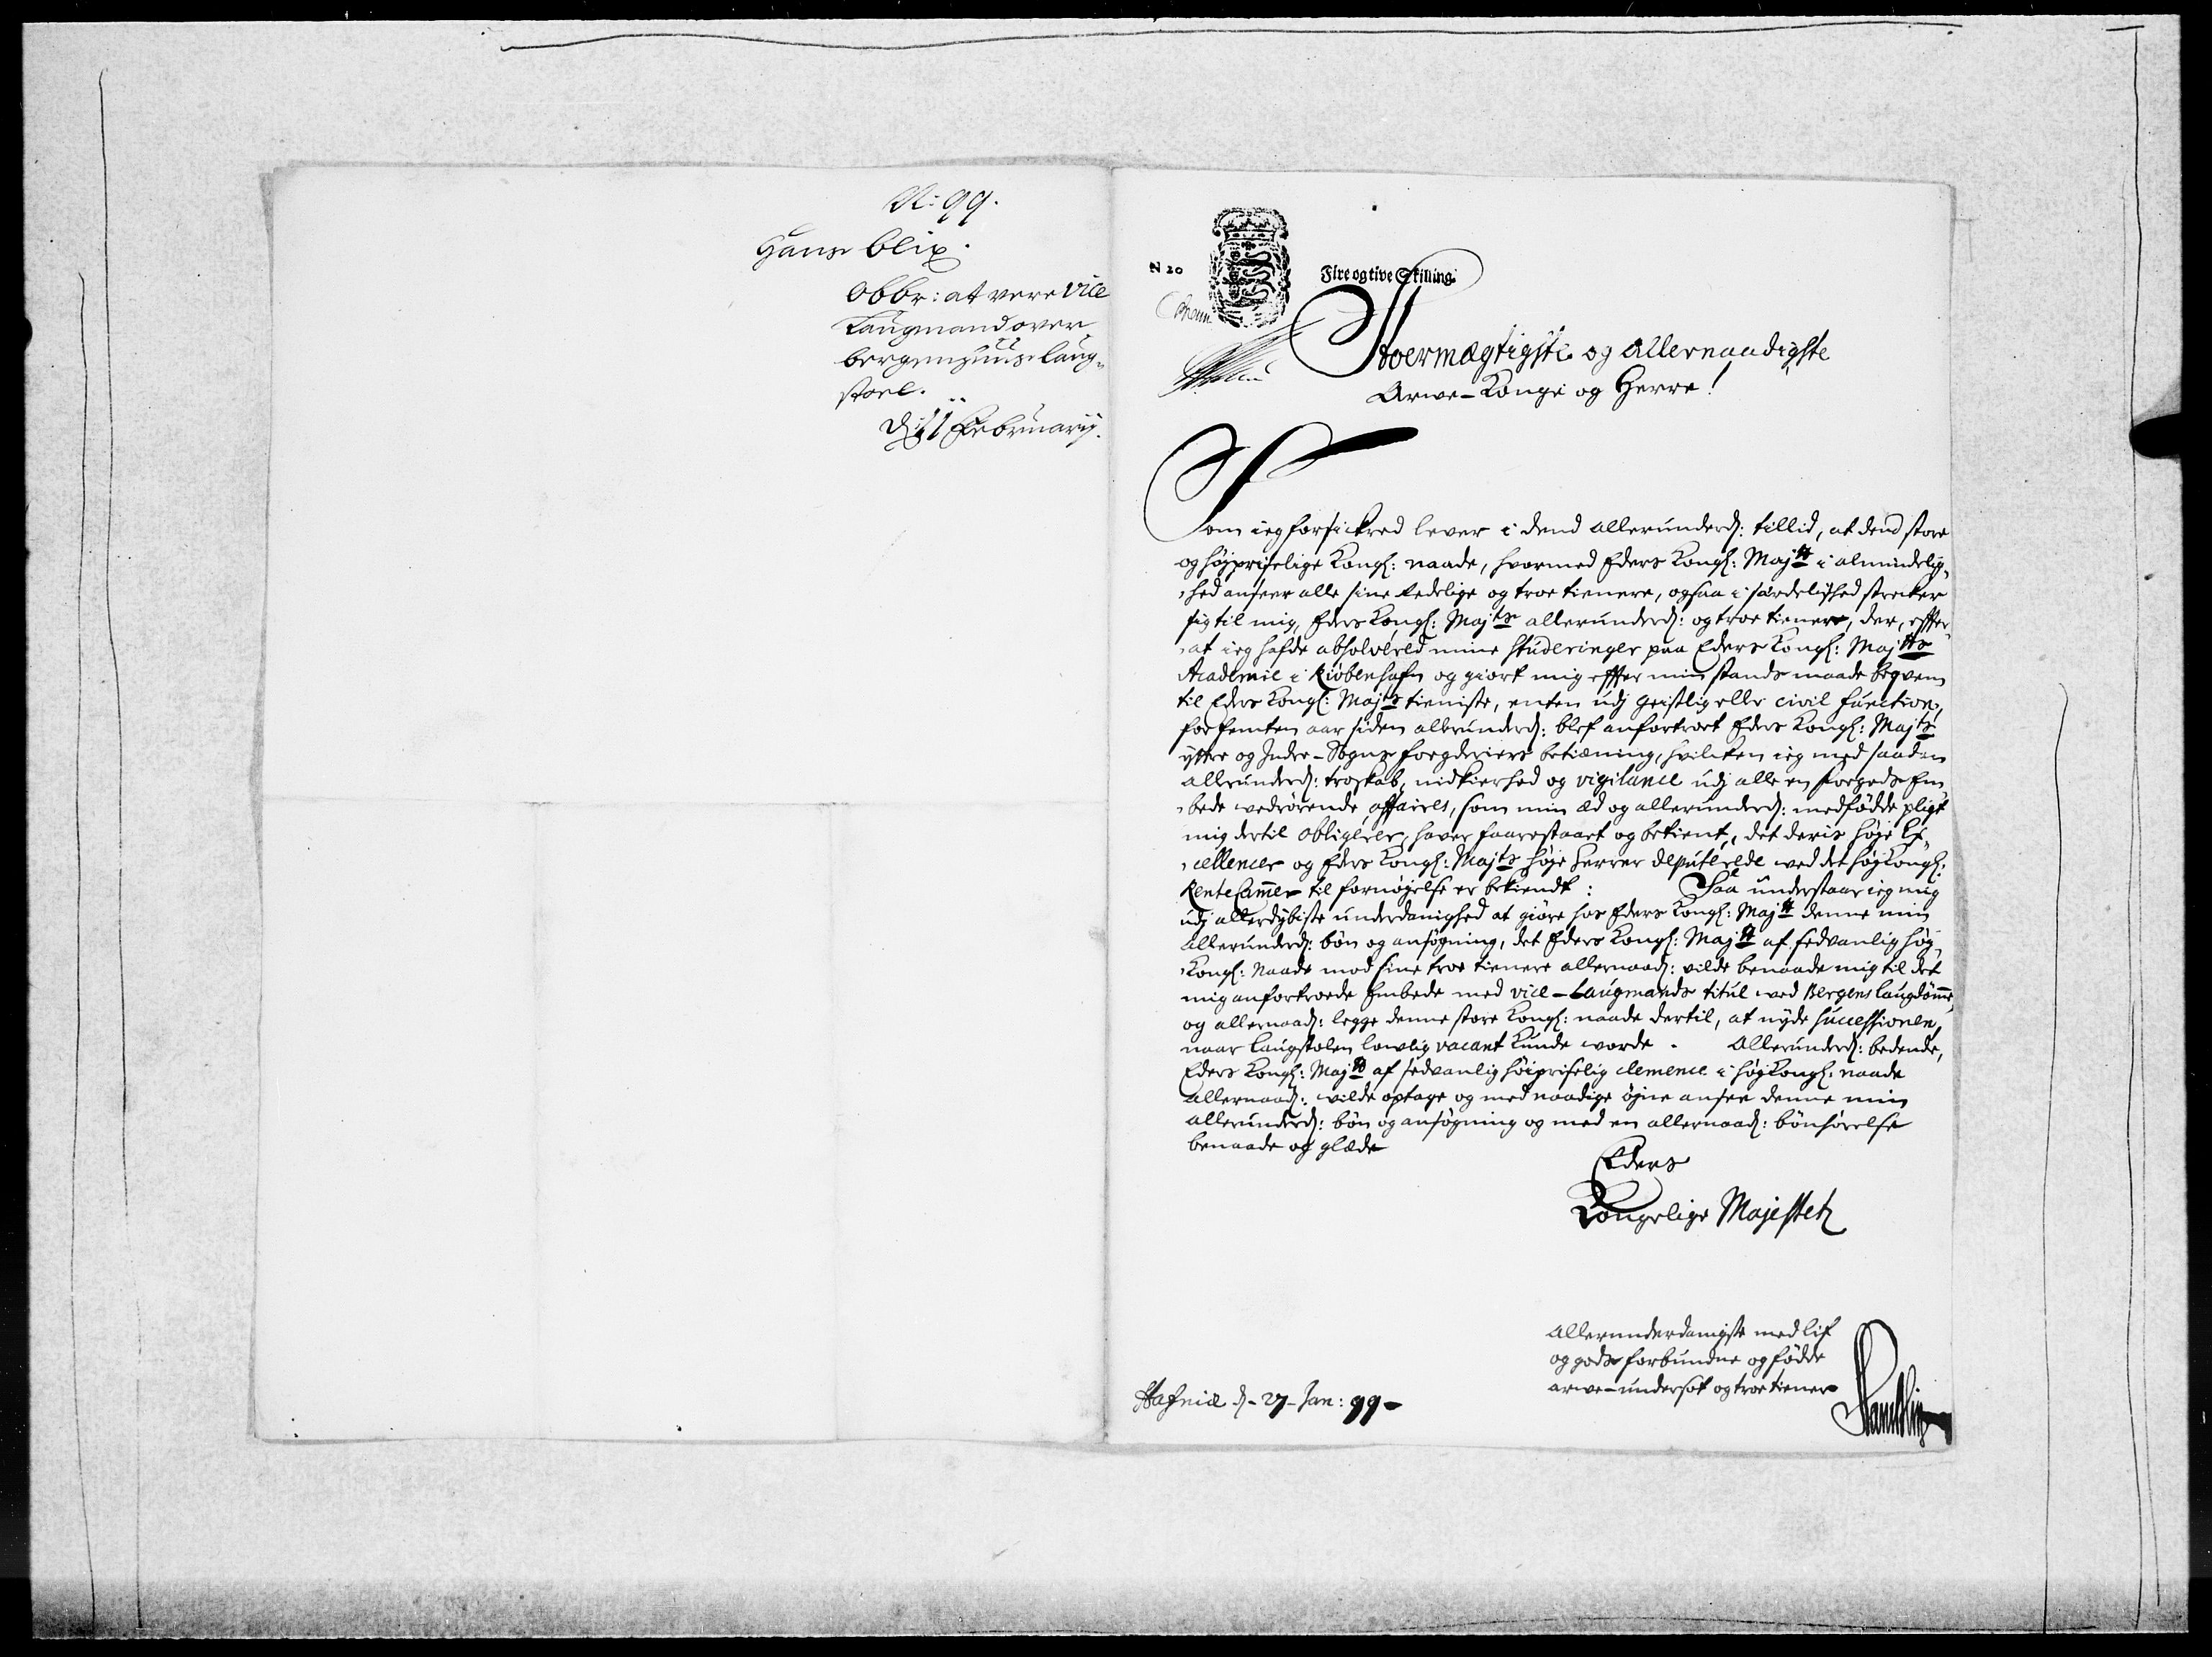 N: 99.
Hans Blix.
Obbr: at vere vice
Laugmand over
bergenhuus laug-
stoel.
d: 11 Februarij.
N 20
Fire og tive Skilling
Stoermægtigste og Allernaadigste
Arve-Konge og Herre!
Som ieg forsickred lever i dend allerunderd: tillid, at dend store
og højpriselige Kongl: naade, hvormed Eders Kongl: Majtt i almindelig-
hed anseer alle sine redelige og troe tienere, ogsaa i særdelished strecker
sig til mig, Eders Kongl: Majts allerunderd: og troe tienere, der, effter-
at ieg hafde absolvéred mine Studeringer paa Eders Kongl: Majtts
Academie i Kiøbenhafn og giort mig effter min stands maade beqvem
til Eders Kongl: Majts tieniste, enten udj geistlig eller civil function,
for femten aar siden allerunderd: blef anfortroet Eders Kongl: Majts
yttre og Indre-Sogns fogderiers betiæning, hvilcken ieg med saadan
allerunderd: troskab, nidkierhed og vigilance udj alle en fogeds Em-
bede vedrørende affaires, som min æd og allerunderd: medfødde pligt
mig dertil obligérer, haver forrestaaet og betient, det deris høje Ex-
cellencer og Eders Kongl: Majts høje Herrer deputérede ved det høj Kongl:
Rente Camer til fornøjelse er bekiendt: Saa understaar ieg mig
udj allerdybiste underdanighed at giøre hos Eders Kongl: Majtt denne min
allerunderd: bøn og ansøgning, det Eders Kongl: Majtt af sedvanlig høj-
Kongl: Naade mod sine troe tienere allernaad: vilde benaade mig til det
mig anfortroede Embede med vice-Laugmands titul ved Bergens Laugdømme,
og allernaad: legge denne store Kongl: naade dertil, at nyde successionen,
naar Laugstolen lovlig vacant kunde vorde. Allerunderd: bedende,
Eders Kongl: Majtt af sedvanlig højprisselig clemence i høj Kongl: naade
allernaad: vilde optage og med naadige øjne ansee denne min
allerunderd: bøn og ansøgning og med en allernaad: bønhørelse
benaade og glæde
Eders
Kongelige Majestetz
allerunderdanigste med lif
og gods forbundne og fødde
arve-undersot og troe tiener
Hafniæ d. 27 Jan: 99
Hans Blix